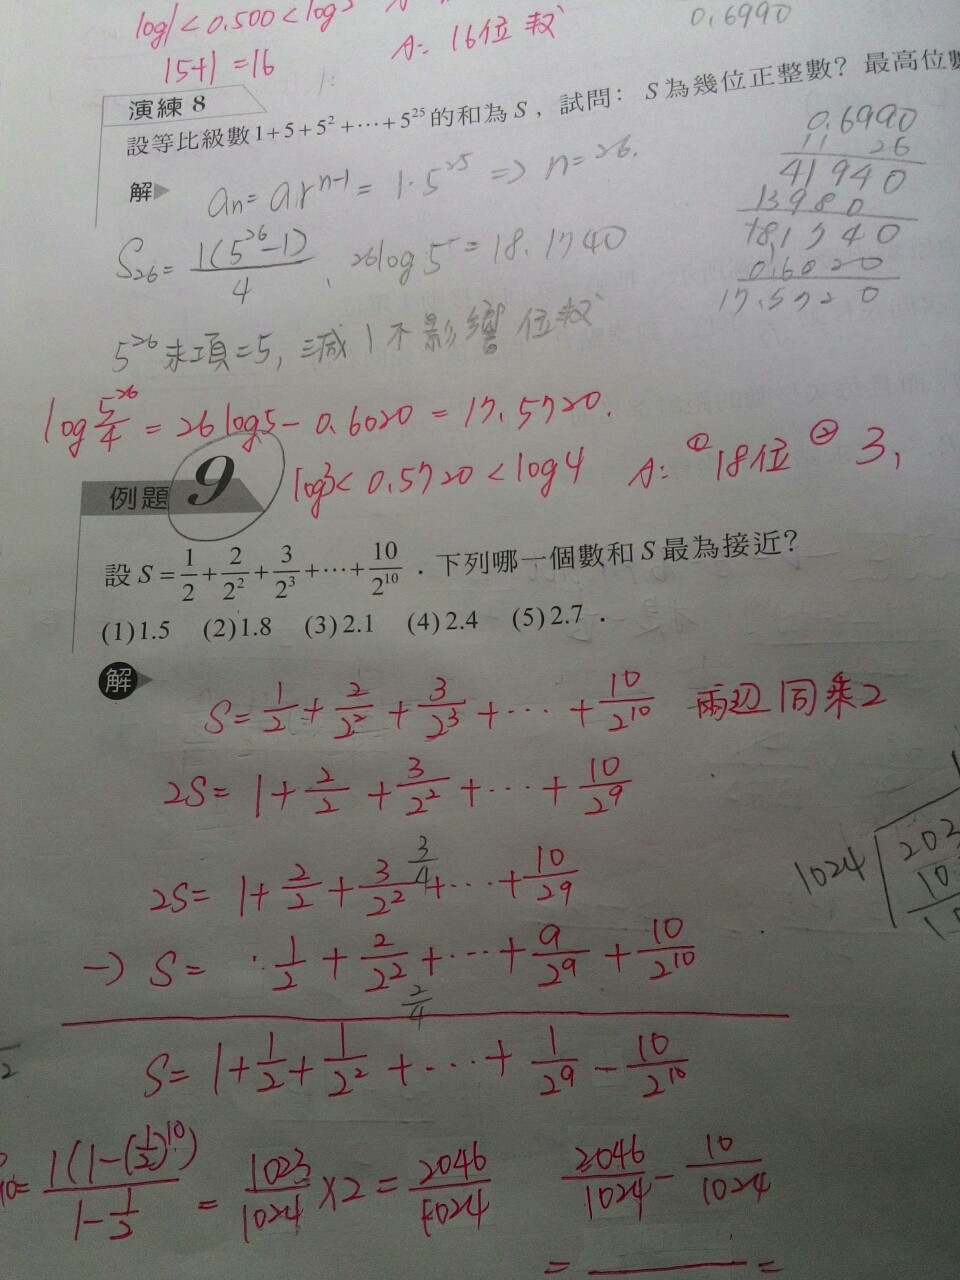 log1 < 0.500 < log
15+1 = 16
A: 16位數
0.6990
演練 8
設等比級數 1+5+5²+⋯+5²⁵ 的和為 S，試問：S 為幾位正整數？最高位數
解
aₙ = a₁rⁿ⁻¹ = 1·5²⁵ => n = 26.
S₂₆ = 1(5²⁶-1)/4 , 26log5 = 18.1740
5²⁶末項=5, 減1不影響位數
0.6990
26
41940
13980
18.1740
0.6020
17.5720
log 5²⁶/4 = 26log5 - 0.6020 = 17.5720.
log3 < 0.5720 < log4 A: ① 18位 ② 3,
例題 9
設 S = 1/2 + 2/2² + 3/2³ + ⋯ + 10/2¹⁰ . 下列哪一個數和 S 最為接近？
(1) 1.5 (2) 1.8 (3) 2.1 (4) 2.4 (5) 2.7 .
解
S = 1/2 + 2/2² + 3/2³ + ⋯ + 10/2¹⁰ 兩边同乘2
2S = 1 + 2/2 + 3/2² + ⋯ + 10/2⁹
3/4
2S = 1 + 2/2 + 3/2² + ⋯ + 10/2⁹
-) S = 1/2 + 2/2² + ⋯ + 9/2⁹ + 10/2¹⁰
2/4
S = 1 + 1/2 + 1/2² + ⋯ + 1/2⁹ - 10/2¹⁰
10 = 1(1-(1/2)¹⁰)/(1-1/2) = 1023/1024 × 2 = 2046/1024
2046/1024 - 10/1024
= =
1024
203
10